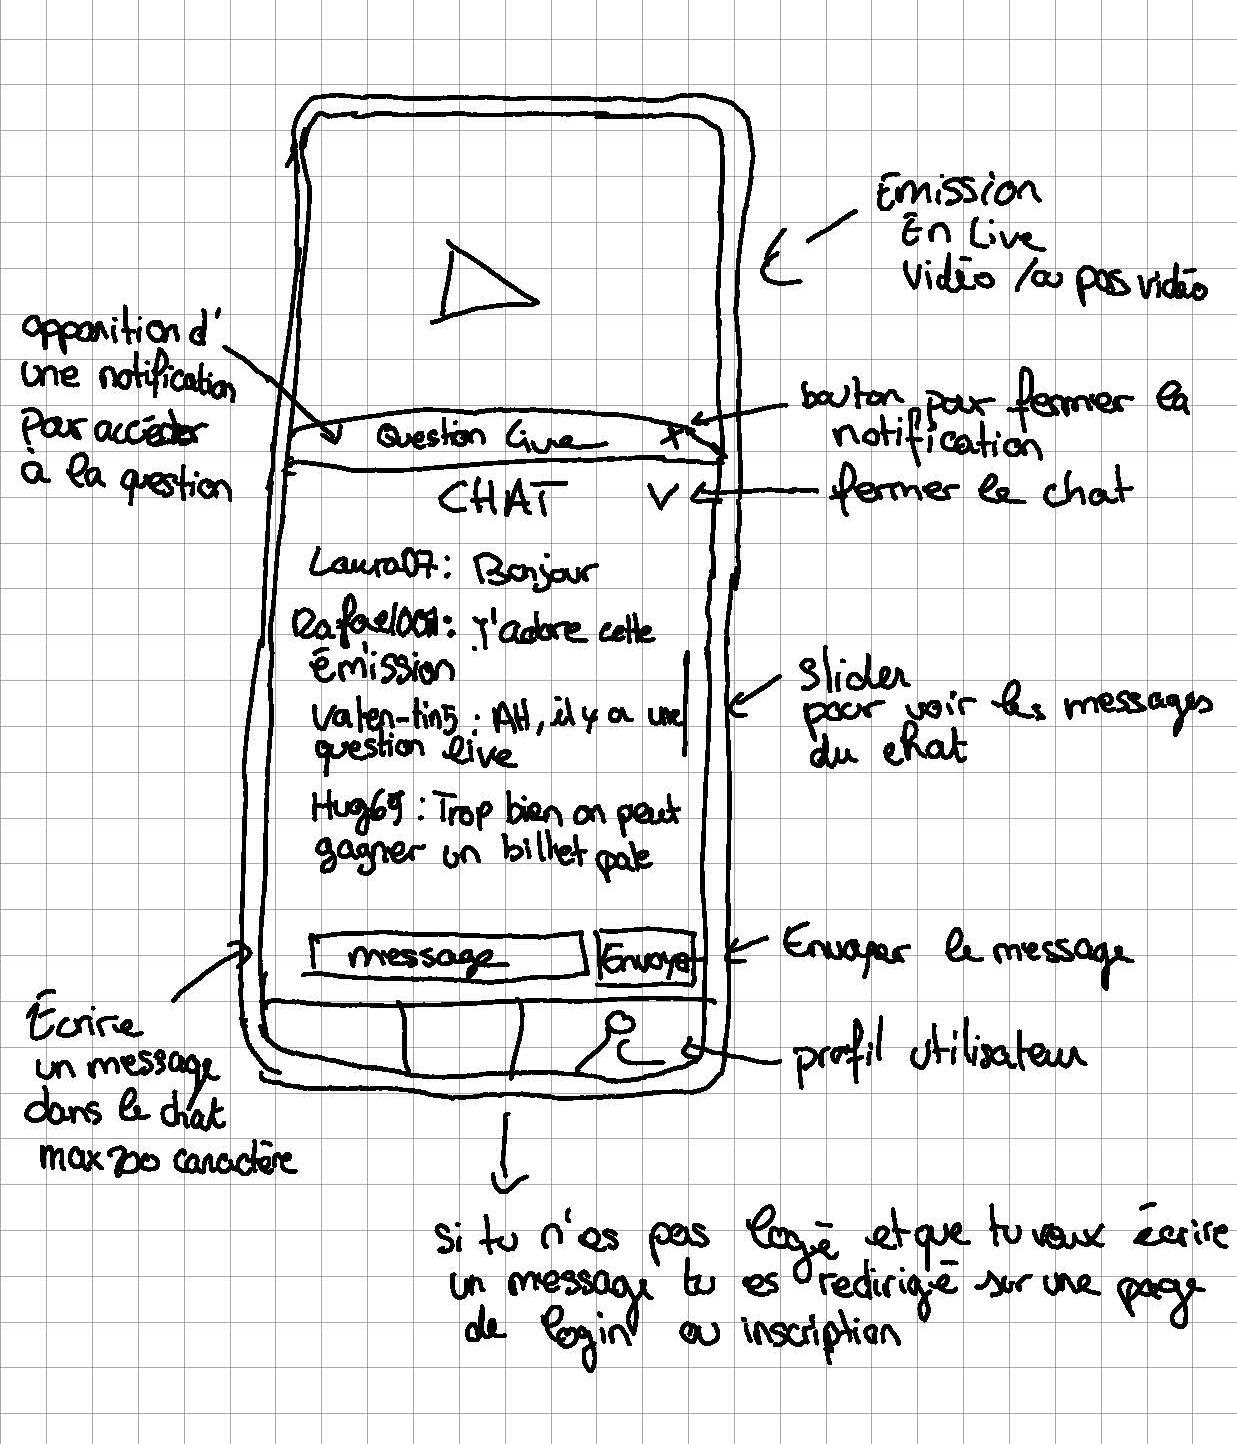 Emission
En Live
vidéo / ou pas vidéo
apparition d'
une notification
pour accéder
à la question
bouton pour fermer la
notification
Question live X
CHAT V
fermer le chat
Laura07 : Bonjour
: J'adore cette
émission
Valen-tin5 : AH, il y a une
question live
Hug69 : Trop bien on peut
gagner un billet
Slider
pour voir les messages
du chat
message
Envoyer
Envoyer le message
Écrire
un message
dans le chat
max 200 caractère
profil utilisateur
si tu n'es pas logé et que tu veux écrire
un message tu es redirigé sur une page
de login ou inscription